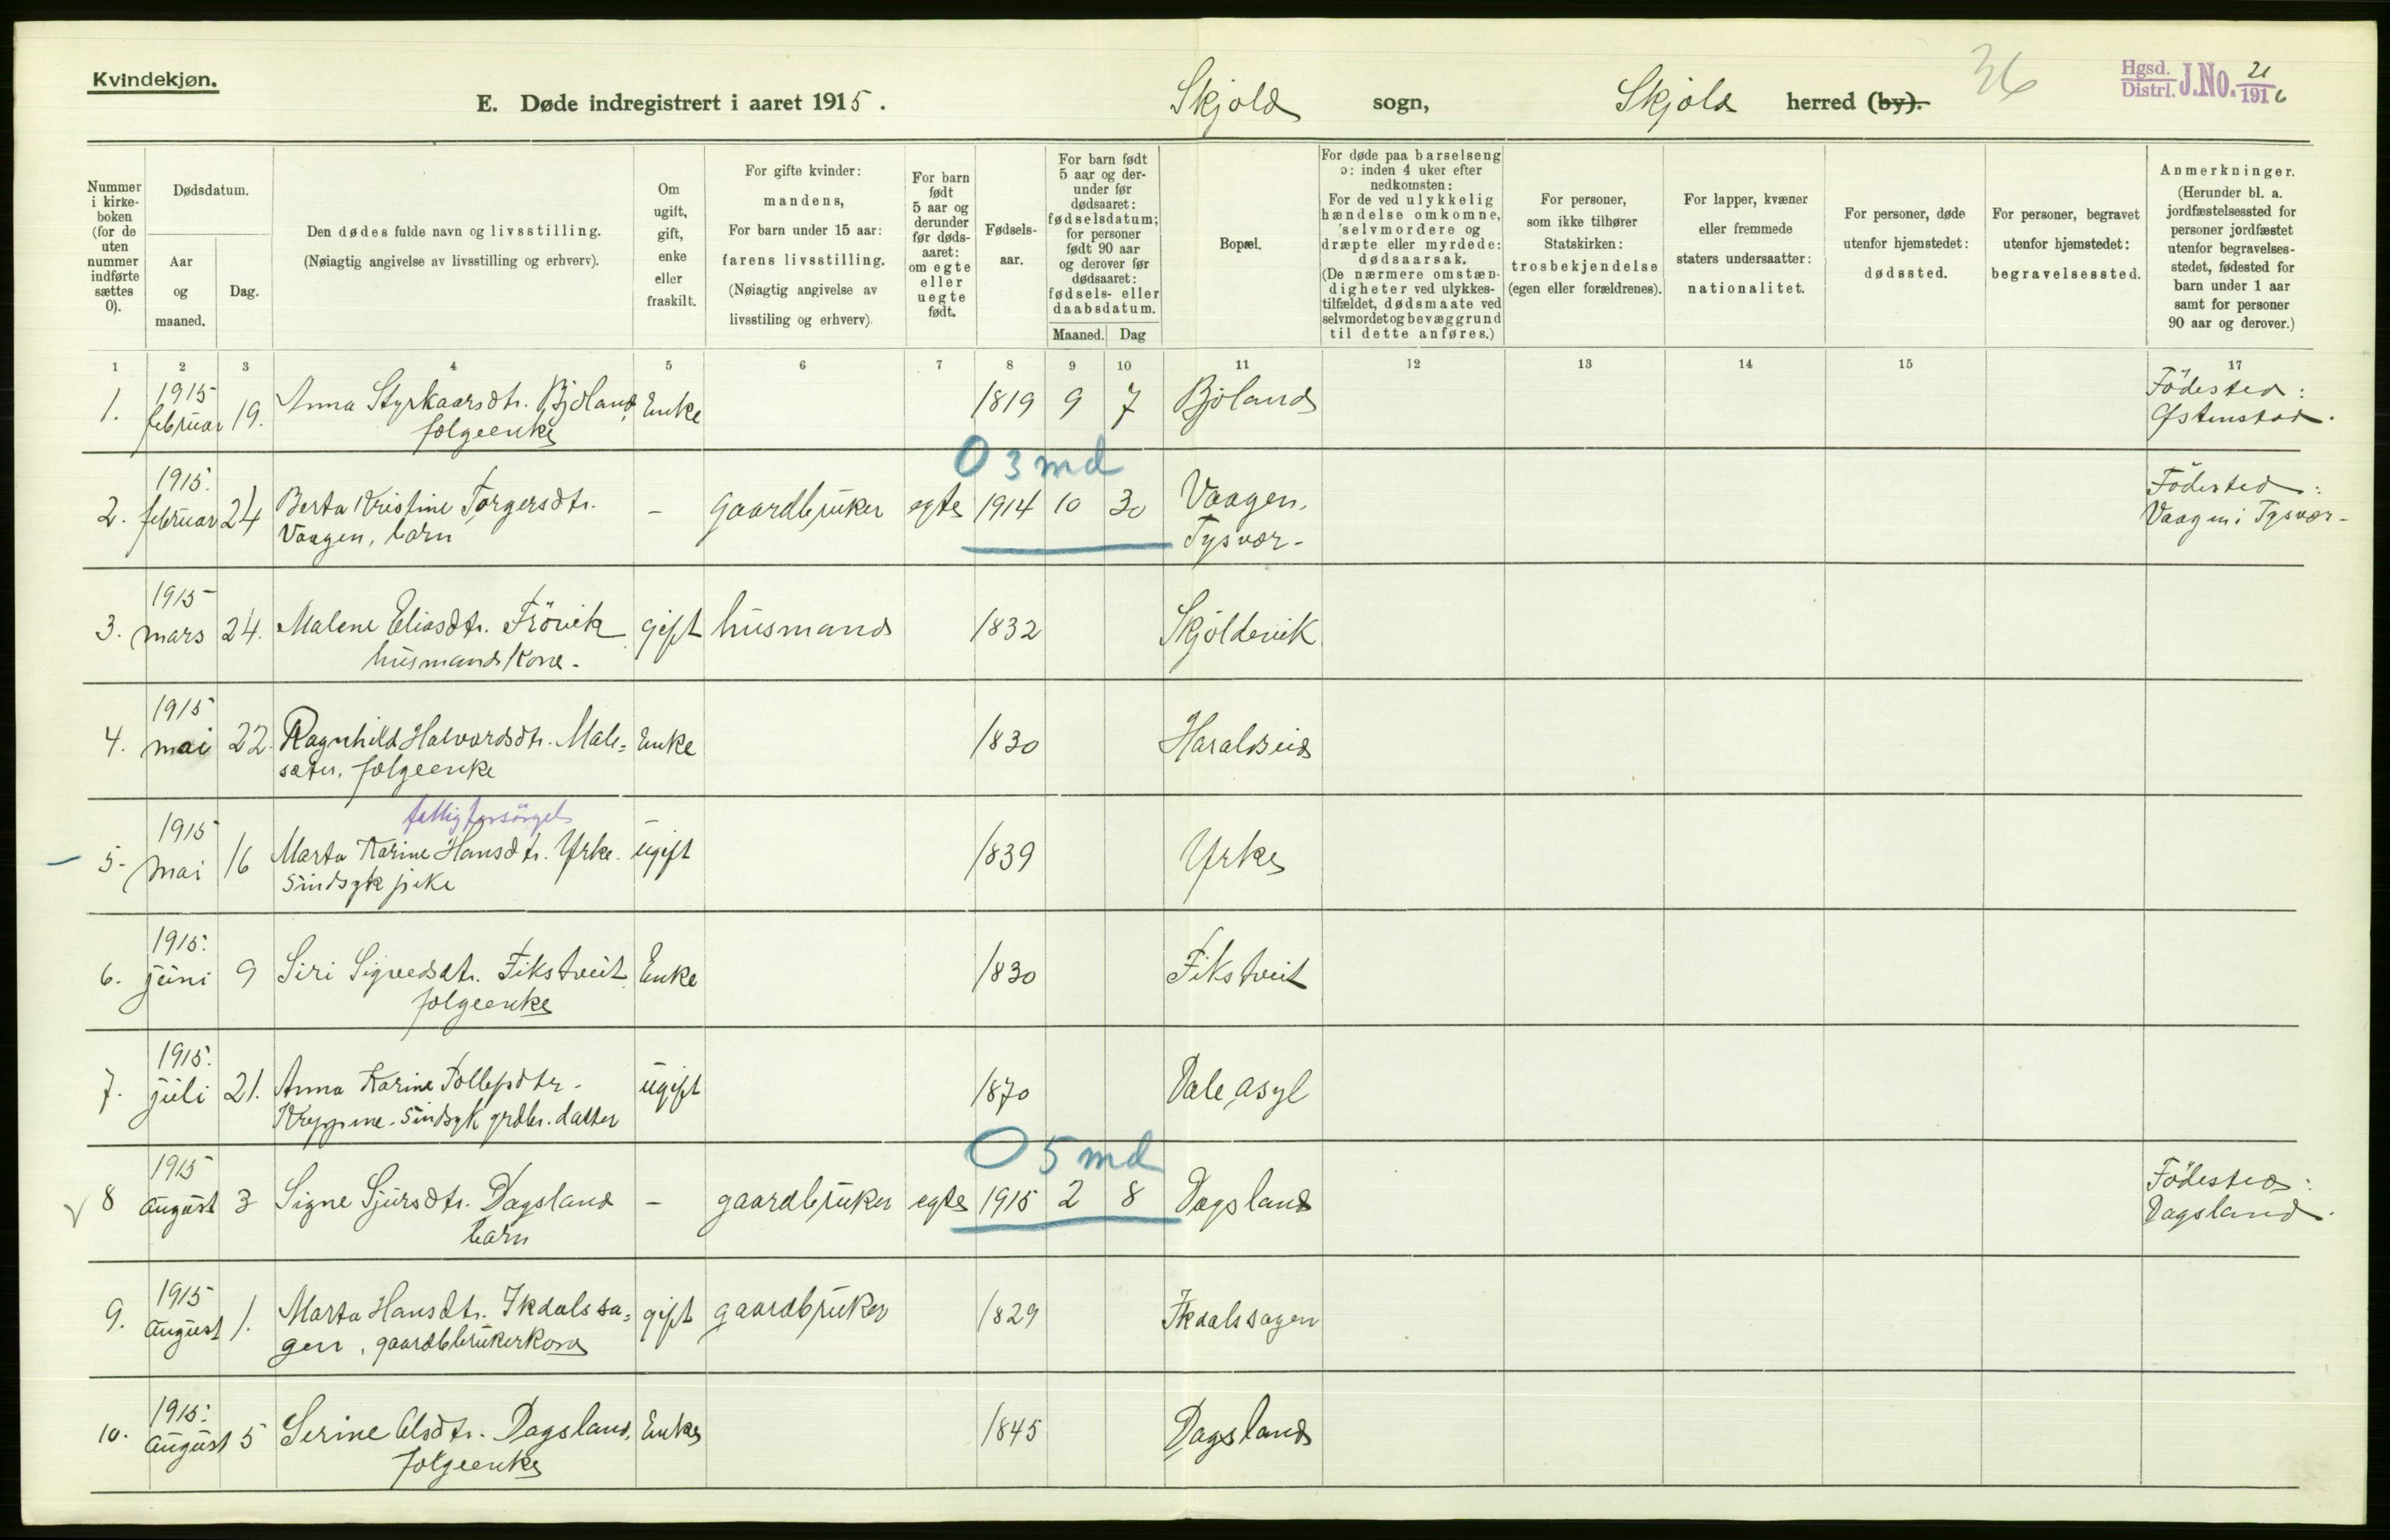 Kvindekjøn.
E. Døde indregistrert i aaret 1915.
Skjold sogn, Skjold herred (by).
36
Hgsd. Distrl. J.No. 21 1916
Nummer i kirke-boken (for de uten nummer indførte sættes 0).
Dødsdatum.
Aar og maaned.
Dag.
Den dødes fulde navn og livsstilling.
(Nøiagtig angivelse av livsstilling og erhverv).
Om ugift, gift, enke eller fraskilt.
For gifte kvinder: mandens,
For barn under 15 aar: farens livsstilling.
(Nøiagtig angivelse av livsstiling og erhverv).
For barn født 5 aar og derunder før døds-aaret: om egte eller uegte født.
Fødsels-aar.
For barn født 5 aar og der-under før dødsaaret: fødselsdatum; for personer født 90 aar og derover før dødsaaret: fødsels- eller daabsdatum.
Maaned. Dag
Bopæl.
For døde paa barselseng ɔ: inden 4 uker efter nedkomsten:
For de ved ulykkelig hændelse omkomne, selvmordere og dræpte eller myrdede: dødsaarsak.
(De nærmere omstæn-digheter ved ulykkes-tilfældet, dødsmaate ved selvmordet og bevæggrund til dette anføres.)
For personer, som ikke tilhører Statskirken: trosbekjendelse (egen eller forældrenes).
For lapper, kvæner eller fremmede staters undersaatter: nationalitet.
For personer, døde utenfor hjemstedet: dødssted.
For personer, begravet utenfor hjemstedet: begravelsessted.
Anmerkninger.
(Herunder bl. a. jordfæstelsessted for personer jordfæstet utenfor begravelses-stedet, fødested for barn under 1 aar samt for personer 90 aar og derover.)
1 2 3 4 5 6 7 8 9 10 11 12 13 14 15 17
1. 1915 februar 19. Anna Styrkaarsdtr. Bjoland Enke 1819 9 7 Bjoland Födested:
folgeenke Østenstad.
0 3 md
2. 1915. februar 24 Berta Kristine Torgersdtr. - gaardbruker egte 1914 10 30 Vaagen, Födested:
Vaagen, barn Tysvær- Vaagen i Tysvær-
3. 1915 mars 24. Malene Eliasdtr. Frövik gift husmand 1832 Skjoldevik
husmandskone.
4. 1915 mai 22. Ragnhild Halvordsdtr. Male= Enke 1830 Haraldseid
sæter, folgeenke
fattigforsörget
5. 1915 mai 16 Marta Karine Hansdtr. Yrke. ugift 1839 Yrke
Sindsyk pike
6. 1915. juni 9 Siri Sigvedsdtr. Fikstveit Enke 1830 Fikstveit
folgeenke
7. 1915. juli 21. Anna Karine Tollefsdtr. ugift 1870 Dale asyl
Sindsyk grdbr. datter
0 5 md
8 1915 august 3 Signe Sjursdtr. Dagsland - gaardbruker egte 1915 2 8 Dagsland Födested:
barn Dagsland.
9. 1915 august 1. Marta Hansdtr. Ikdalssa= gift gaardbruker 1829 Ikdalssagen
gen, gaardbbrukerkone
10. 1915. august 5 Serine Olsdtr. Dagsland, Enke 1845 Dagsland
folgeenke